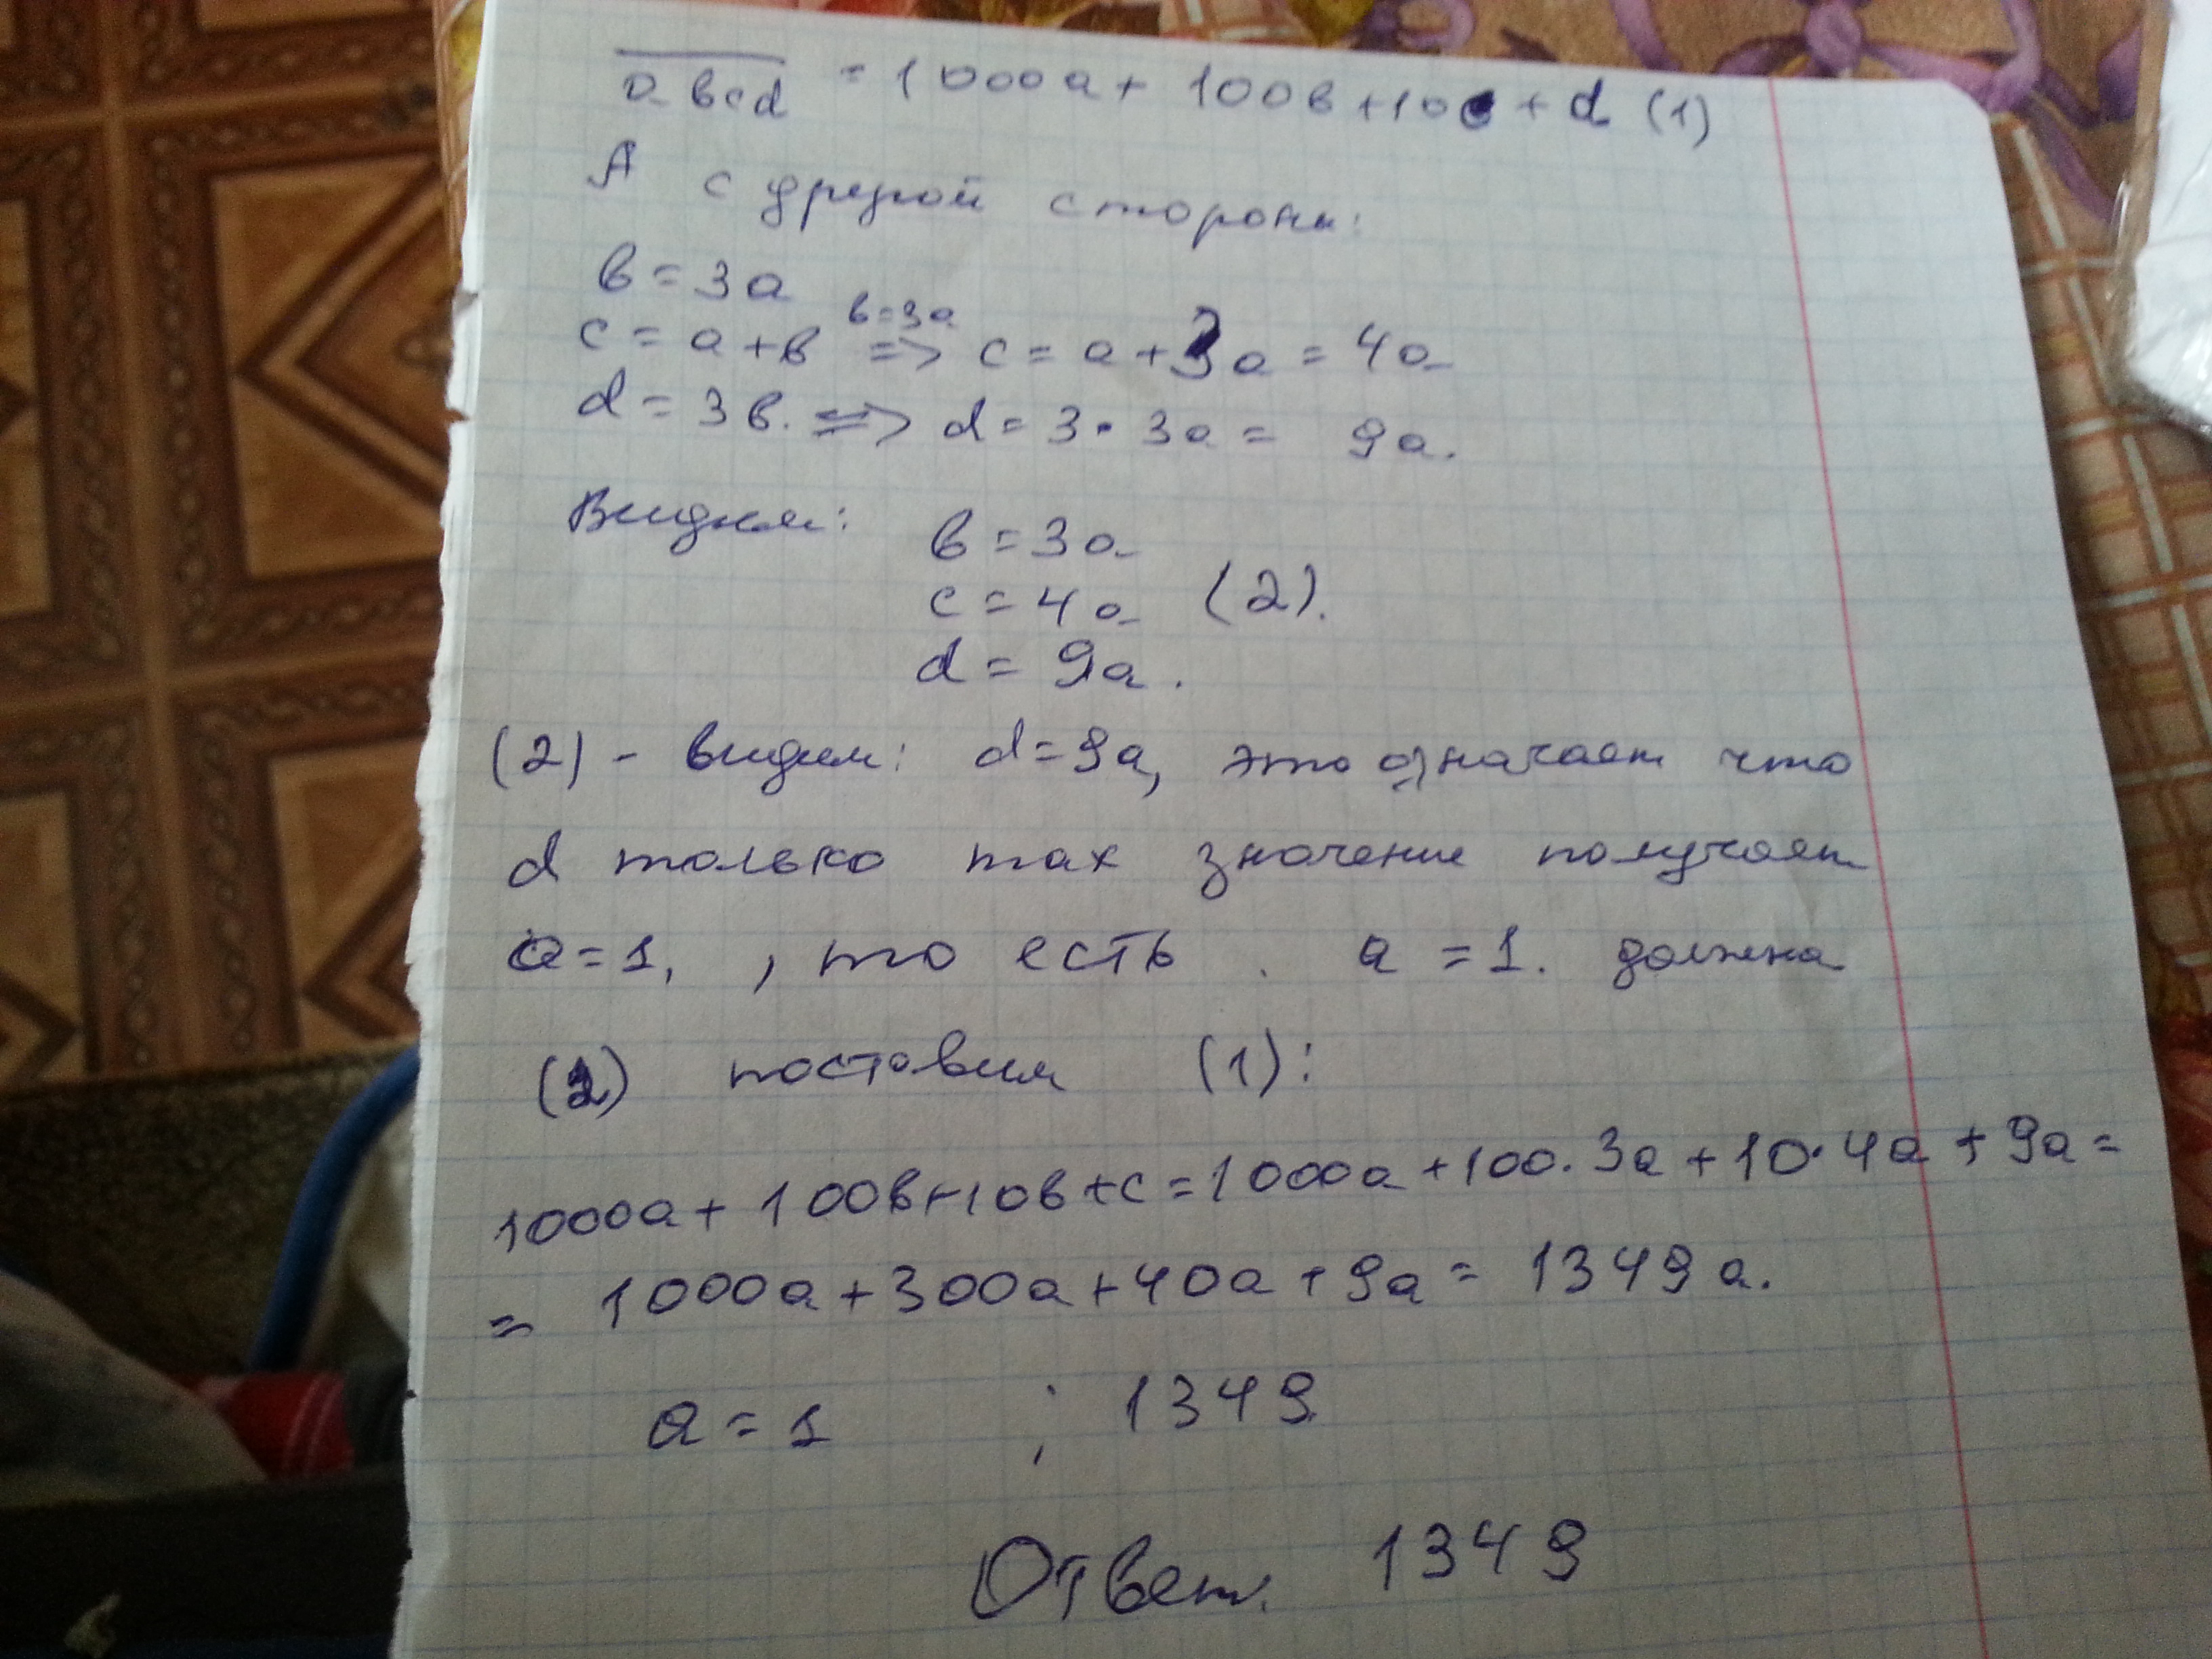 abcd = 1000a + 100в + 10c + d (1)
А с другой стороны:
в = 3a
c = a + в =>^{в=3a} c = a + 3a = 4a
d = 3в. => d = 3 · 3a = 9a.
Видим: в = 3a
c = 4a (2).
d = 9a.
(2) - видим: d = 9a, это означает что
d только max значение получает
a = 1, , то есть . a = 1. должна
(2) поставим (1):
1000a + 100в + 10в + c = 1000a + 100 · 3a + 10 · 4a + 9a =
= 1000a + 300a + 40a + 9a = 1349a.
a = 1 ; 1349
Ответ. 1349